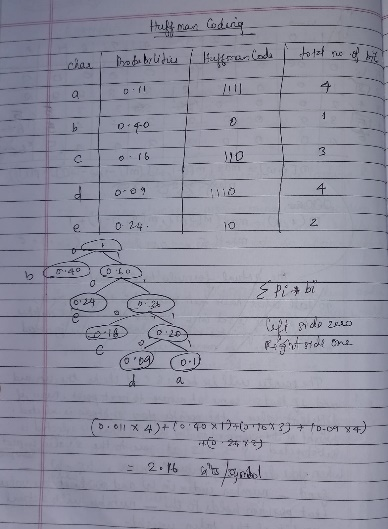 Huffman Coding
char Probabilities Huffman Code total no of bit
a 0.11 1111 4
b 0.40 0 1
c 0.16 110 3
d 0.09 1110 4
e 0.24. 10 2
1
0 1
b 0.40 0.60
0 1
0.24
e
0.16 0.20
c 0 1
0.09 0.1
d a
Σ Pi * bi
left side zero
Right side one
(0.011 x 4) + (0.40 x 1) + (0.16 x 3) + (0.09 x 4)
+ (0.24 x 2)
= 2.16 bits/symbol